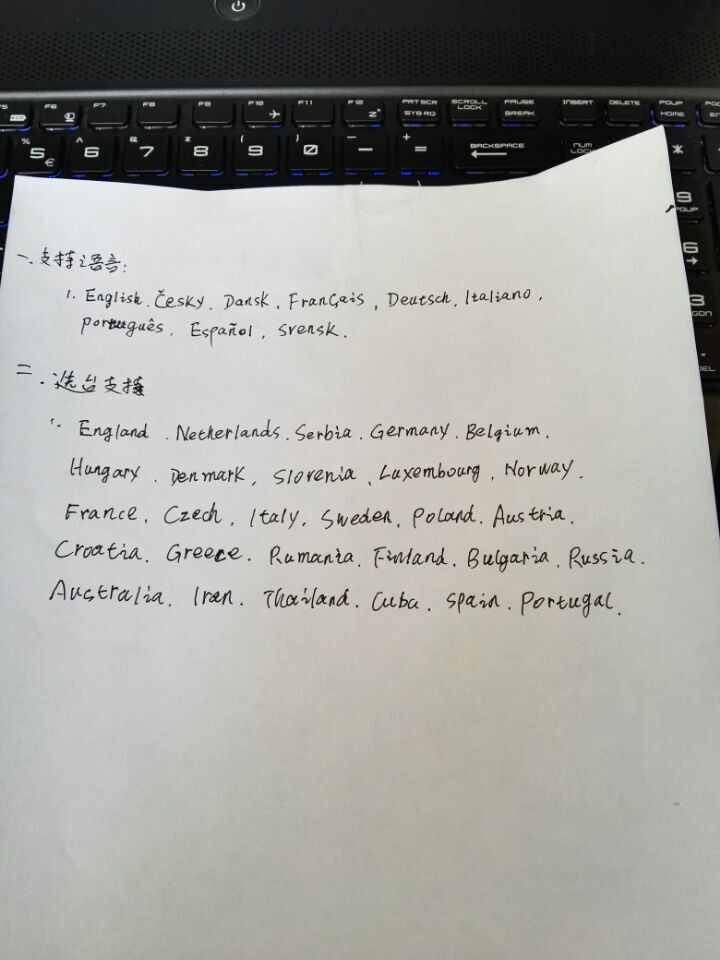 F5 F6 F7 F8 F9 F10 F11 F12 PRT SCR SCROLL LOCK PAUSE BREAK INSERT DELETE PGUP HOME
SYS RQ
% 5 € ^ 6 & 7 * 8 ( 9 ) 0 — - + = BACKSPACE NUM LOCK *
9 PGUP
6
3 PGDN
DEL
一.支持之语言:
1. English. Česky. Dansk. Français, Deutsch, Italiano,
Português. Español, Svensk.
二.选台支持
1. England. Netherlands. Serbia. Germany. Belgium.
Hungary. Denmark, Slovenia, Luxembourg, Norway.
France, Czech, Italy, Sweden, Poland. Austria.
Croatia. Greece. Rumania. Finland. Bulgaria. Russia.
Australia. Iran. Thailand. Cuba. Spain. Portugal.